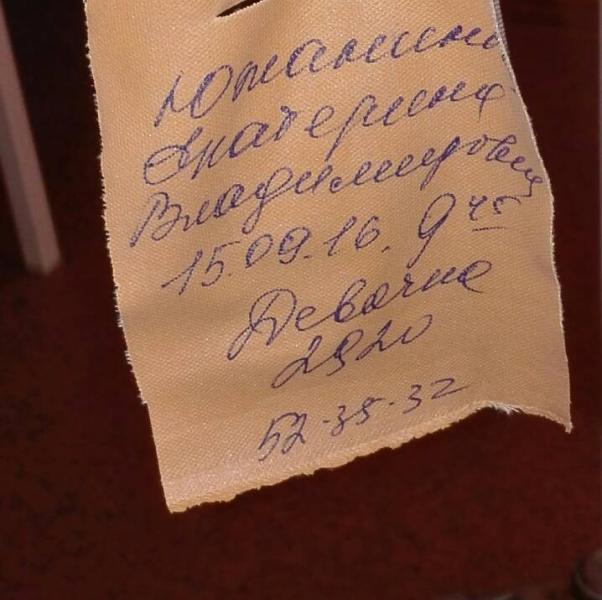 Южанина
Екатерина
Владимировна
15.09.16. 9 45
Девочка
2920
52-35-32